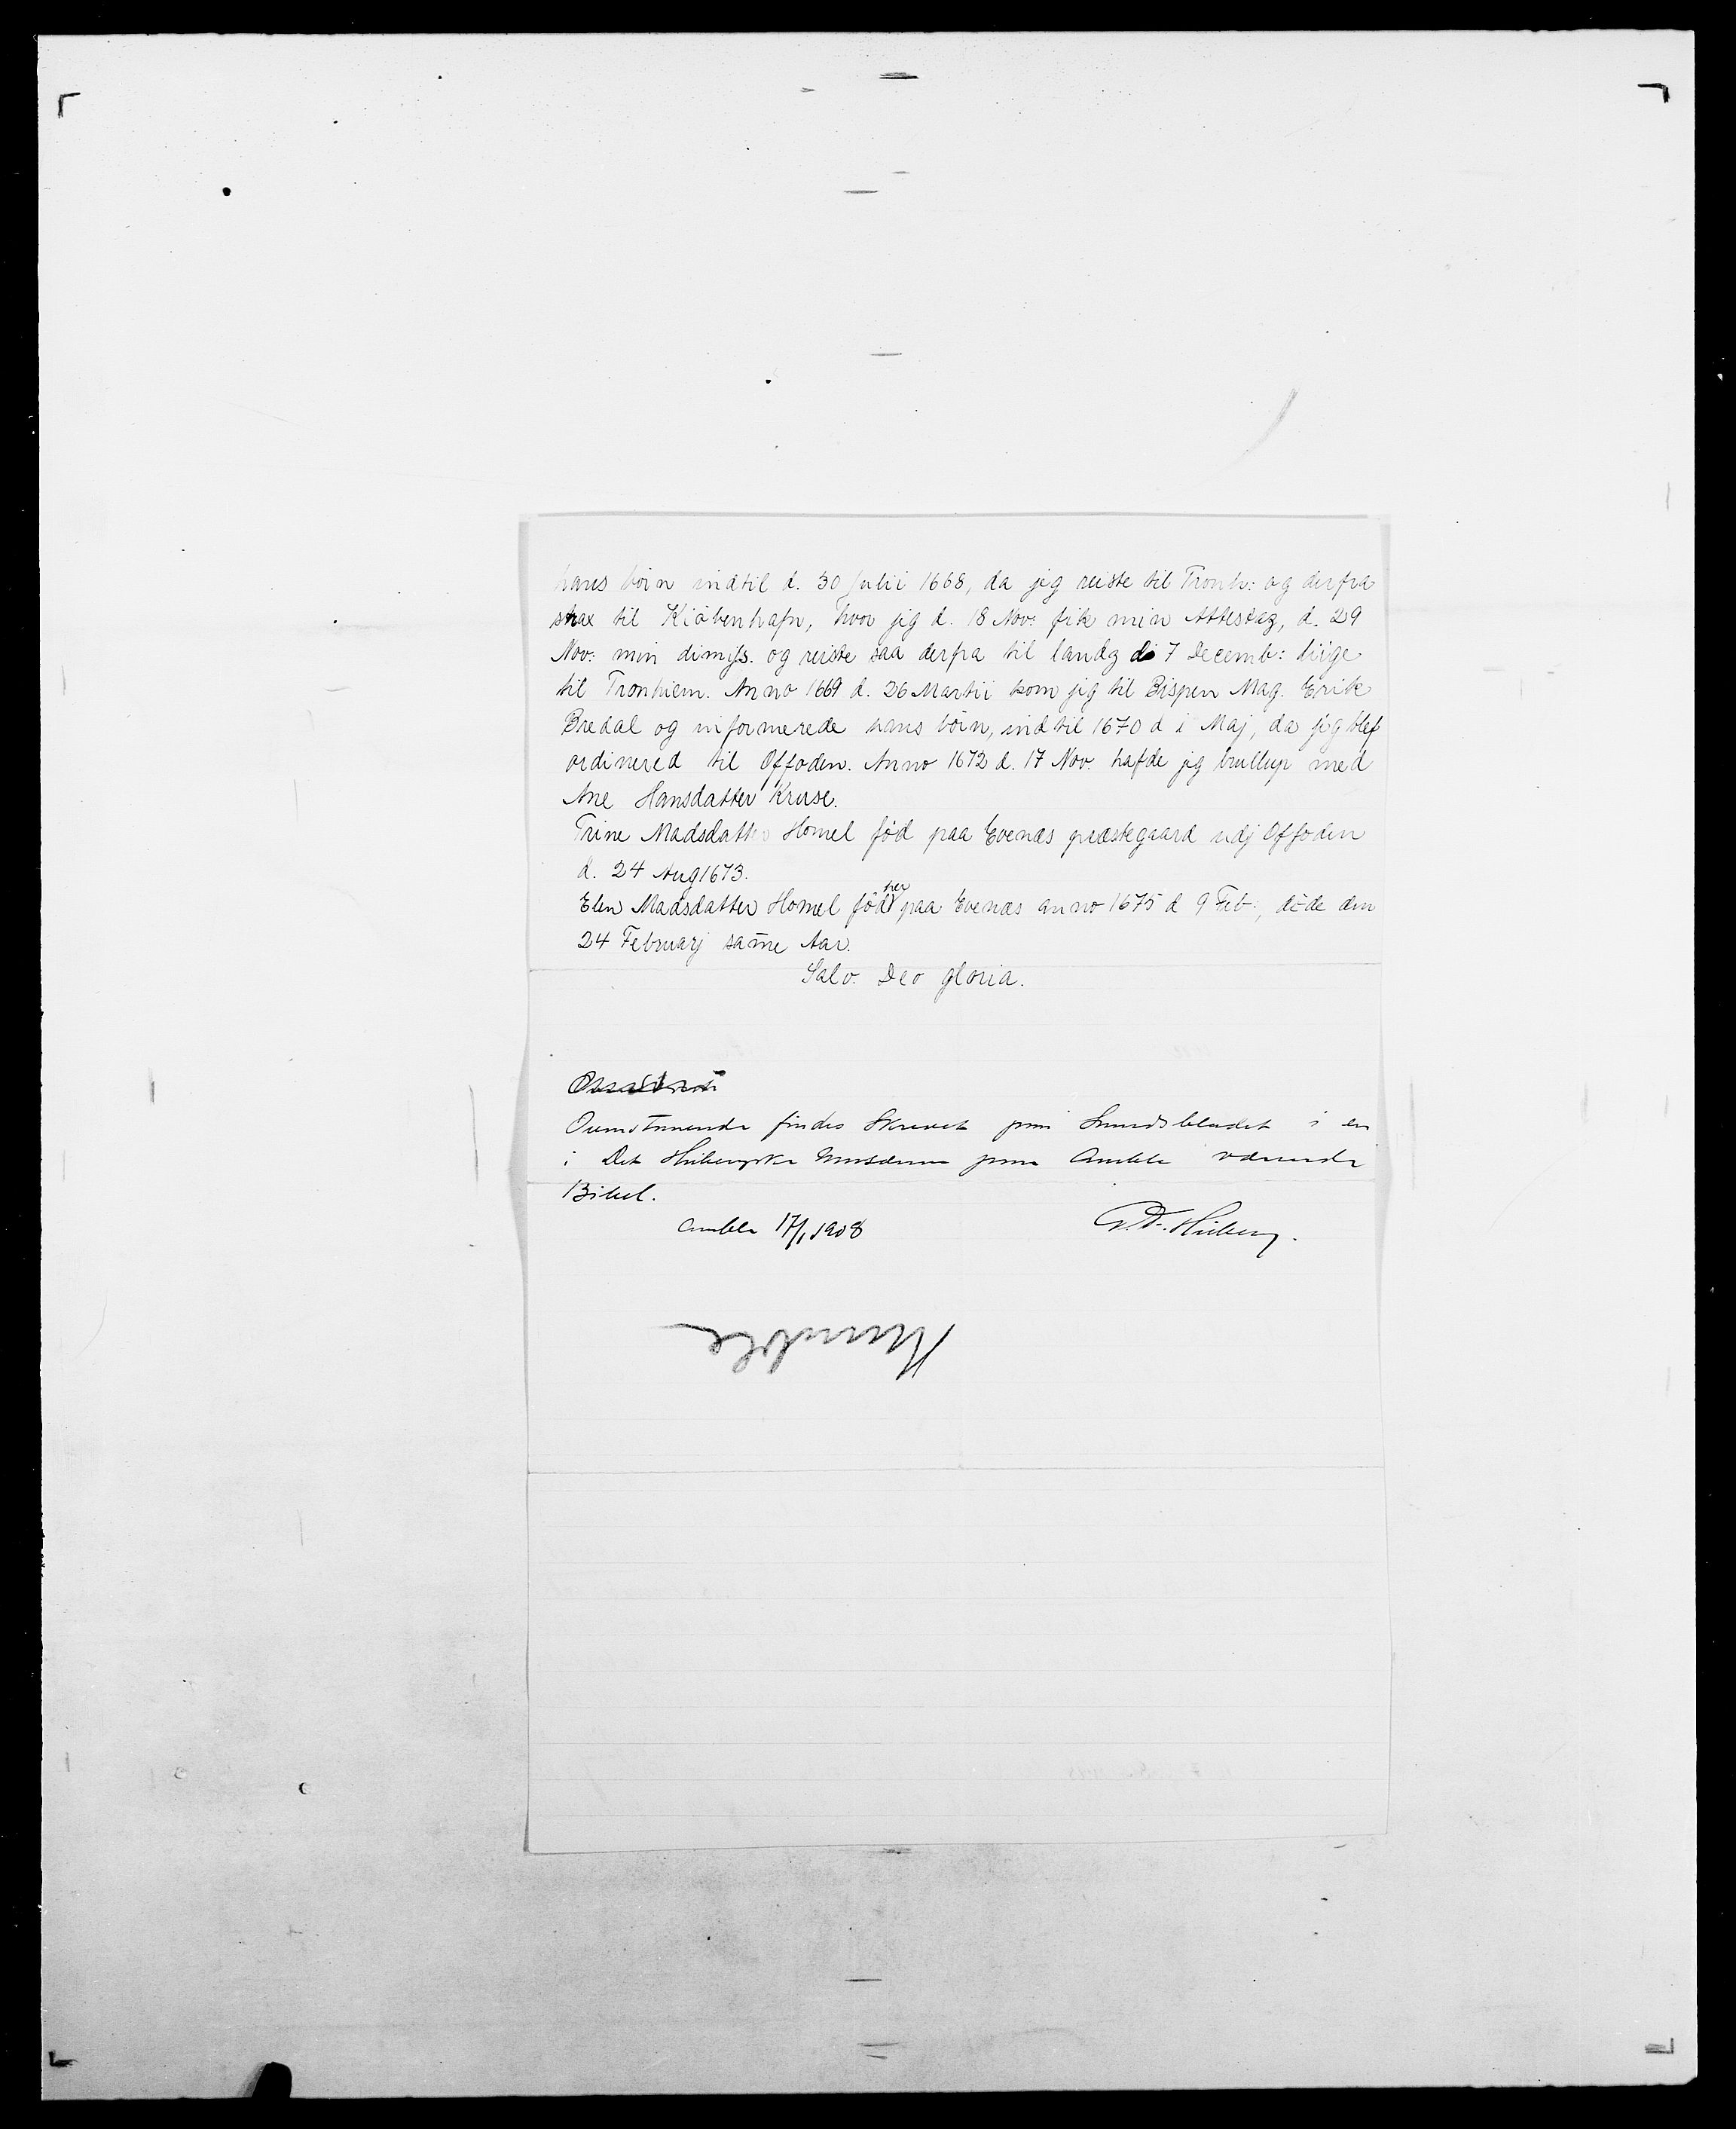 hans börn indtil d. 30 Julii 1668, da jeg reiste til Tronh: og derfra
strax til Kiöbenhafn, hvor jeg d. 18 Nov: fik min Attestaz, d. 29
Nov: min dimiss. og reiste saa derfra til landz d. 7 Decemb: liige
til Tronhiem. Anno 1669 d. 26 Martii kom jeg til Bispen Mag. Erik
Bredal og informerede hans börn, ind til 1670 d 1 Maj, da jeg blef
ordinered til Offoden. Anno 1672 d. 17 Nov. hafde jeg brullup med
Ane Hansdatter Kruse.
Trine Madsdatter Homel född paa Evenæs præstegaard udj Offoden
d. 24 Aug 1673.
Elen Madsdatter Homel föd her paa Evenæs anno 1675 d 9 Feb:, döde den
24 Februarj same Aar.
Salv. Deo gloria.
Ovenstaaende findes skrevet paa Smudsbladet i en
i Det Heibergske Museum paa Amble værende
Bibel.
Amble 17/1 1908 G. F. Heiberg.
Amble